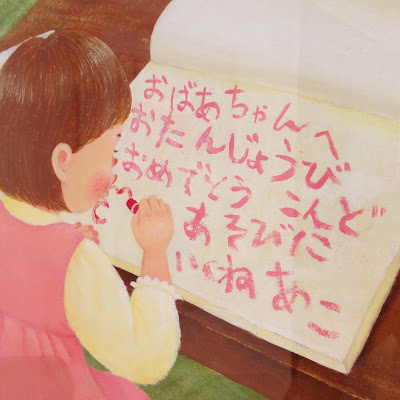 おばあちゃんへ
おたんじょうび
おめでとう こんど
あそびに
いくね あこ